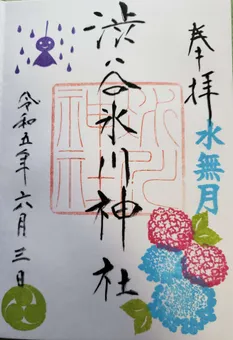 奉拝
水無月
渋谷氷川神社
令和五年六月三日